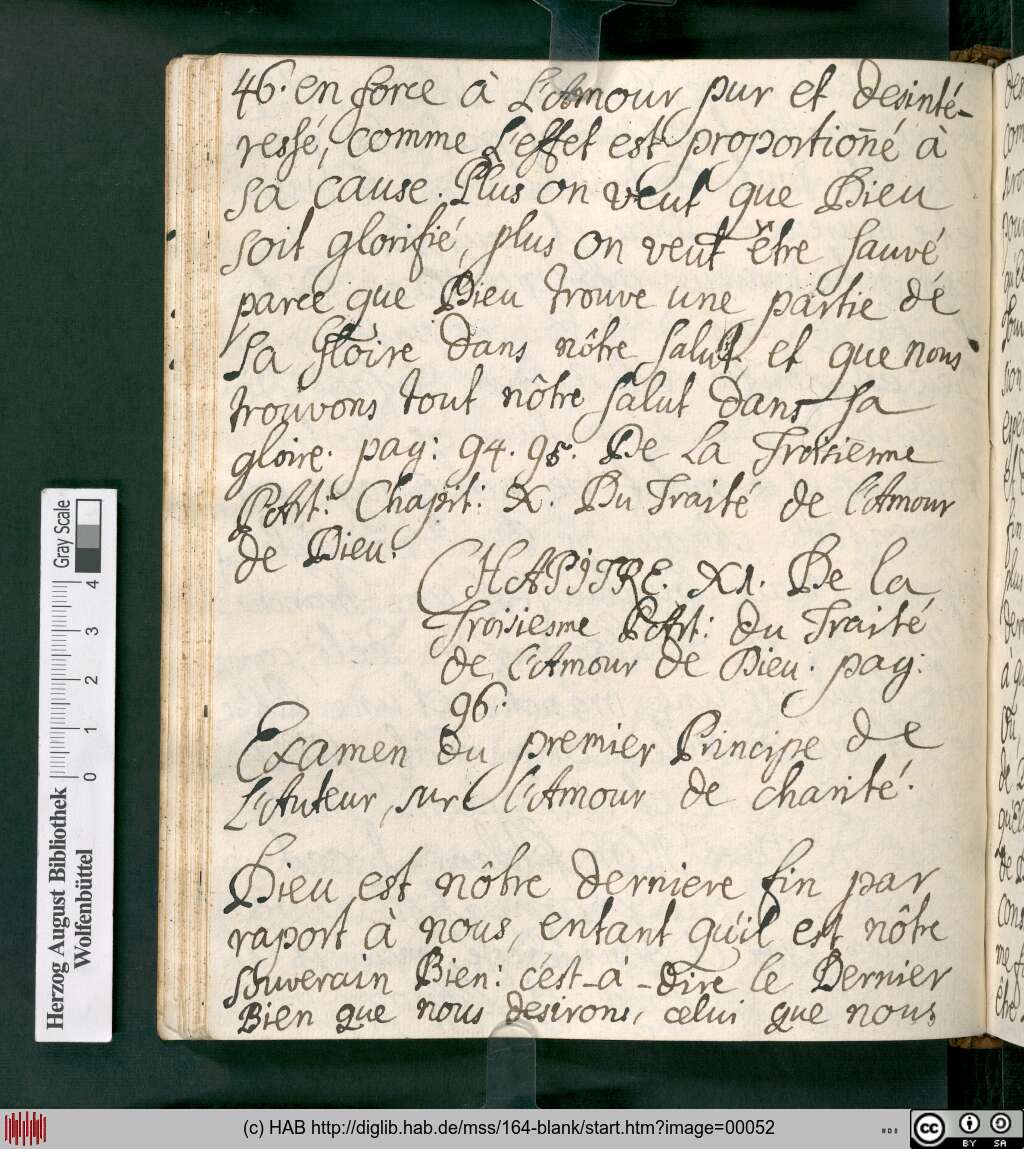 46. en force à L'Amour pur et desinté-
ressé, comme L'effet est proportioñé à
sa cause. Plus on veut que Dieu
soit glorifié, plus on veut être sauvé
parce que Dieu trouve une partie de
sa gloire dans nôtre salut, et que nous
trouvons tout nôtre salut dans sa
gloire. pag: 94. 95. De La Troisiesme
PArt: Chapit: X. Du Traité de l'Amour
de Dieu.
CHAPITRE. XI. De la
Troisiesme PArt: du Traité
de l'Amour de Dieu. pag:
96.
Examen du premier Principe de
L'Auteur sur l'Amour de charité.
Dieu est nôtre derniere fin par
raport à nous, entant qu'il est nôtre
souverain Bien: c'est-à-dire le Dernier
Bien que nous desirons, celui que nous
Herzog August Bibliothek
Wolfenbüttel
0 1 2 3 4
Gray Scale
(c) HAB http://diglib.hab.de/mss/164-blank/start.htm?image=00052
cc BY SA